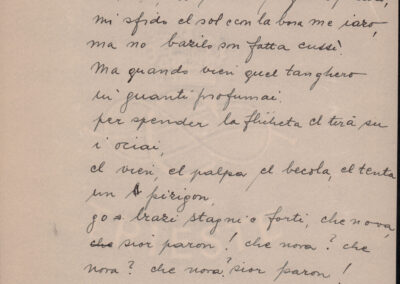 mi sfido el sol con la bora me iazo,
ma no barilo son fatta cussì.
Ma quando vien quel tanghero
in guanti profumai
per spender la flicheta el tira su
i ociai,
el vien, el palpa el becola, el tenta
un pizigon,
go i brazi stagni e forti, che nova,
sior paron! che nova? che
nova? che nova? sior paron!